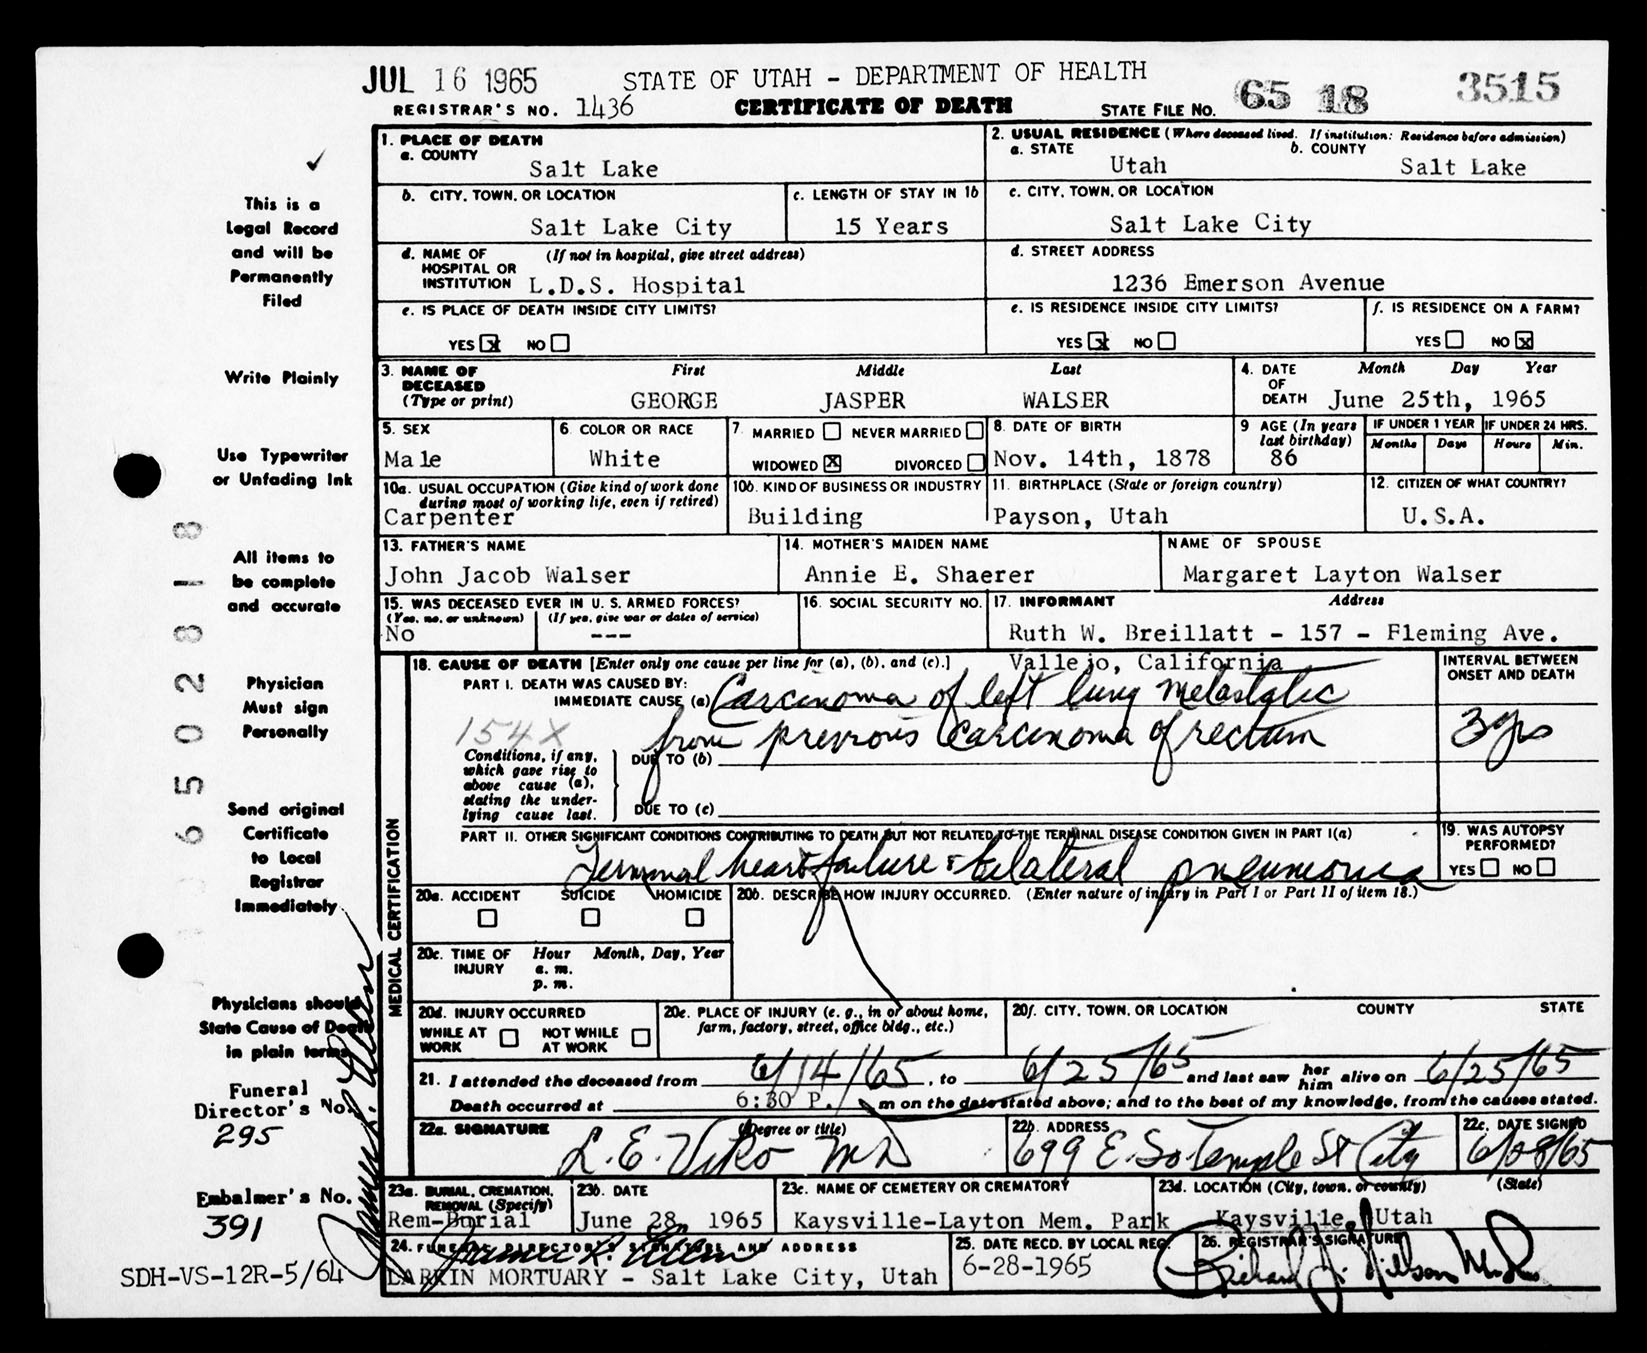 JUL 16 1965 STATE OF UTAH - DEPARTMENT OF HEALTH
REGISTRAR'S NO. 1436 CERTIFICATE OF DEATH STATE FILE NO. 65 18 3515
1. PLACE OF DEATH
a. COUNTY
Salt Lake
2. USUAL RESIDENCE (Where deceased lived. If institution: Residence before admission)
a. STATE b. COUNTY
Utah Salt Lake
b. CITY, TOWN, OR LOCATION
Salt Lake City
c. LENGTH OF STAY IN 1b
15 Years
c. CITY, TOWN, OR LOCATION
Salt Lake City
d. NAME OF (If not in hospital, give street address)
HOSPITAL OR
INSTITUTION L.D.S. Hospital
d. STREET ADDRESS
1236 Emerson Avenue
e. IS PLACE OF DEATH INSIDE CITY LIMITS?
YES X NO
e. IS RESIDENCE INSIDE CITY LIMITS?
YES X NO
f. IS RESIDENCE ON A FARM?
YES NO X
3. NAME OF First Middle Last
DECEASED
(Type or print) GEORGE JASPER WALSER
4. DATE Month Day Year
OF
DEATH June 25th, 1965
5. SEX
Male
6. COLOR OR RACE
White
7. MARRIED NEVER MARRIED
WIDOWED X DIVORCED
8. DATE OF BIRTH
Nov. 14th, 1878
9 AGE (In years
last birthday)
86
IF UNDER 1 YEAR IF UNDER 24 HRS.
Months Days Hours Min.
10a. USUAL OCCUPATION (Give kind of work done
during most of working life, even if retired)
Carpenter
10b. KIND OF BUSINESS OR INDUSTRY
Building
11. BIRTHPLACE (State or foreign country)
Payson, Utah
12. CITIZEN OF WHAT COUNTRY?
U.S.A.
13. FATHER'S NAME
John Jacob Walser
14. MOTHER'S MAIDEN NAME
Annie E. Shaerer
NAME OF SPOUSE
Margaret Layton Walser
15. WAS DECEASED EVER IN U. S. ARMED FORCES?
(Yes, no, or unknown) (If yes, give war or dates of service)
No ---
16. SOCIAL SECURITY NO.
17. INFORMANT Address
Ruth W. Breillatt - 157 - Fleming Ave.
Vallejo, California
18. CAUSE OF DEATH [Enter only one cause per line for (a), (b), and (c).]
INTERVAL BETWEEN
ONSET AND DEATH
PART I. DEATH WAS CAUSED BY:
IMMEDIATE CAUSE (a) Carcinoma of left lung metastatic
154X from previous Carcinoma of rectum 3 yrs
DUE TO (b)
Conditions, if any,
which gave rise to
above cause (a),
stating the under-
lying cause last.
DUE TO (c)
PART II. OTHER SIGNIFICANT CONDITIONS CONTRIBUTING TO DEATH BUT NOT RELATED TO THE TERMINAL DISEASE CONDITION GIVEN IN PART I(a)
Terminal heart failure & bilateral pneumonia
19. WAS AUTOPSY
PERFORMED?
YES NO
MEDICAL CERTIFICATION
20a. ACCIDENT SUICIDE HOMICIDE
20b. DESCRIBE HOW INJURY OCCURRED. (Enter nature of injury in Part I or Part II of item 18.)
20c. TIME OF Hour Month, Day, Year
INJURY a. m.
p. m.
20d. INJURY OCCURRED
WHILE AT NOT WHILE
WORK AT WORK
20e. PLACE OF INJURY (e. g., in or about home,
farm, factory, street, office bldg., etc.)
20f. CITY, TOWN, OR LOCATION COUNTY STATE
21. I attended the deceased from 6/14/65, to 6/25/65 and last saw her him alive on 6/25/65
Death occurred at 6:30 P. m on the date stated above; and to the best of my knowledge, from the causes stated.
22a. SIGNATURE (Degree or title)
L. E. Viko MD
22b. ADDRESS
699 E. So Temple St City
22c. DATE SIGNED
6/28/65
23a. BURIAL, CREMATION,
REMOVAL (Specify)
Rem-Burial
23b. DATE
June 28, 1965
23c. NAME OF CEMETERY OR CREMATORY
Kaysville-Layton Mem. Park
23d. LOCATION (City, town, or county) (State)
Kaysville, Utah
24. FUNERAL DIRECTOR'S SIGNATURE AND ADDRESS
LARKIN MORTUARY - Salt Lake City, Utah
25. DATE RECD. BY LOCAL REG.
6-28-1965
26. REGISTRAR'S SIGNATURE
This is a
Legal Record
and will be
Permanently
Filed
Write Plainly
Use Typewriter
or Unfading Ink
All items to
be complete
and accurate
Physician
Must sign
Personally
Send original
Certificate
to Local
Registrar
Immediately
Physicians should
State Cause of Death
in plain terms
Funeral
Director's No.
295
Embalmer's No.
391
SDH-VS-12R-5/64
6502818